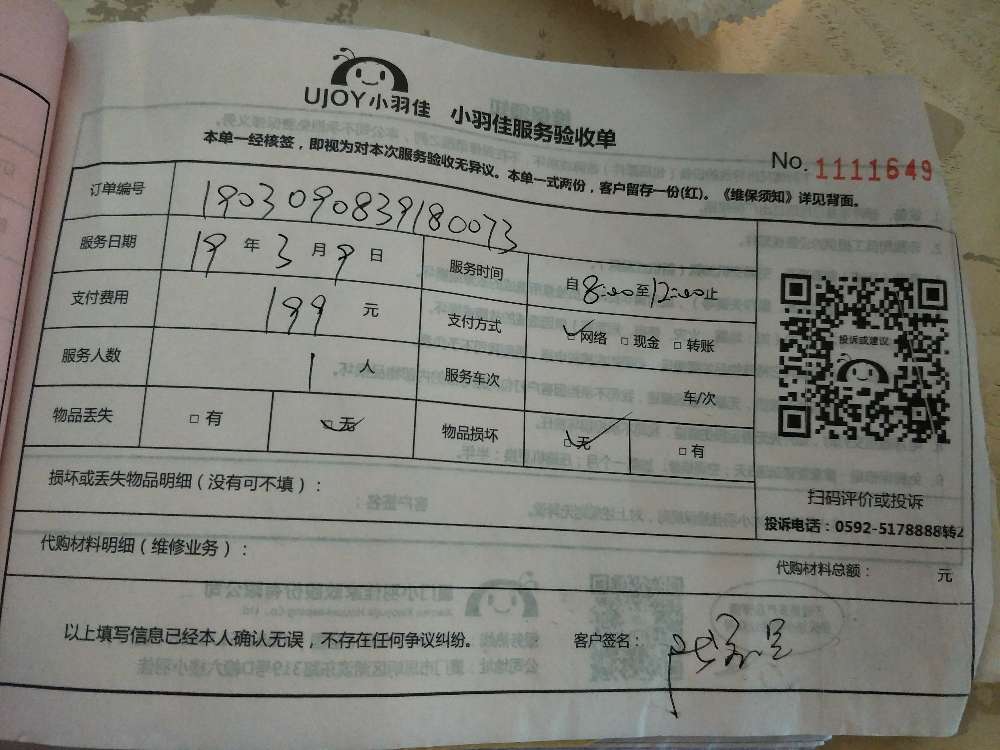 UJOY小羽佳 小羽佳服务验收单
本单一经核签，即视为对本次服务验收无异议。本单一式两份，客户留存一份(红)。《维保须知》详见背面。
No. 1111649
订单编号 1903090839180073
服务日期 19 年 3 月 9 日 服务时间 自8:00至12:00止
支付费用 199 元 支付方式 ☑网络 □现金 □转账
服务人数 1 人 服务车次 车/次
物品丢失 □有 ☑无 物品损坏 ☑无 □有
投诉或建议
损坏或丢失物品明细（没有可不填）：
扫码评价或投诉
投诉电话：0592-5178888转2
代购材料明细（维修业务）：
代购材料总额： 元
以上填写信息已经本人确认无误，不存在任何争议纠纷。 客户签名：